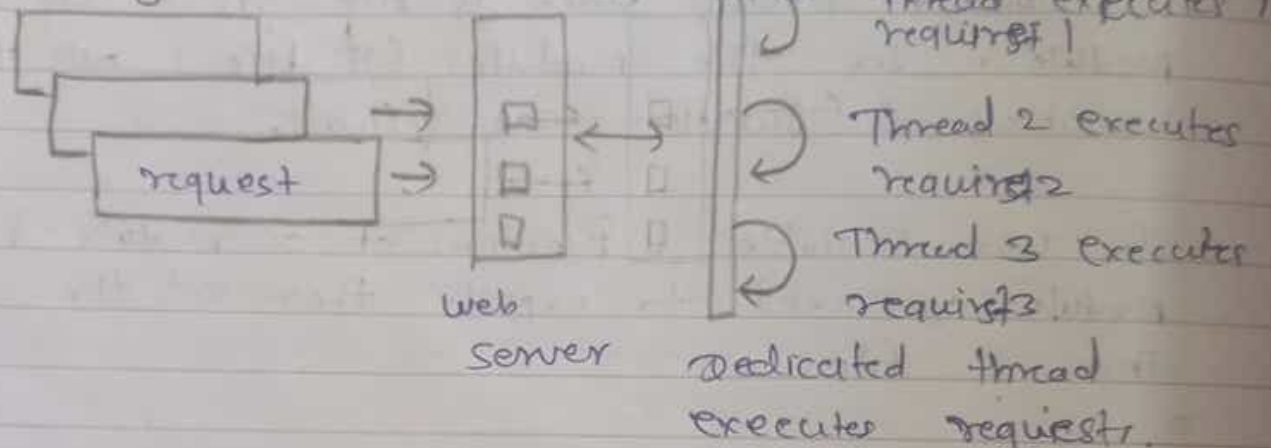 Thread executes
request 1
Thread 2 executes
request 2
request
Thread 3 executes
request 3
web
server
Dedicated thread
executes request